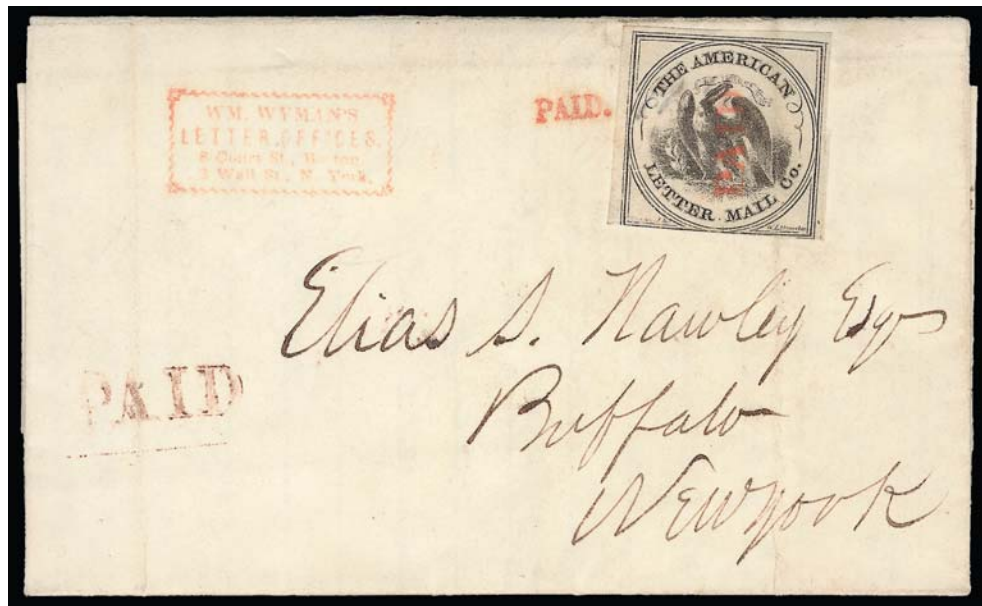 WM. WYMAN'S
LETTER OFFICES.
8 Court St., Boston,
3 Wall St., N. York.
PAID.
THE AMERICAN
PAID
LETTER MAIL Co.
Elias S. Hawley Esq
PAID
Buffalo
Newyork